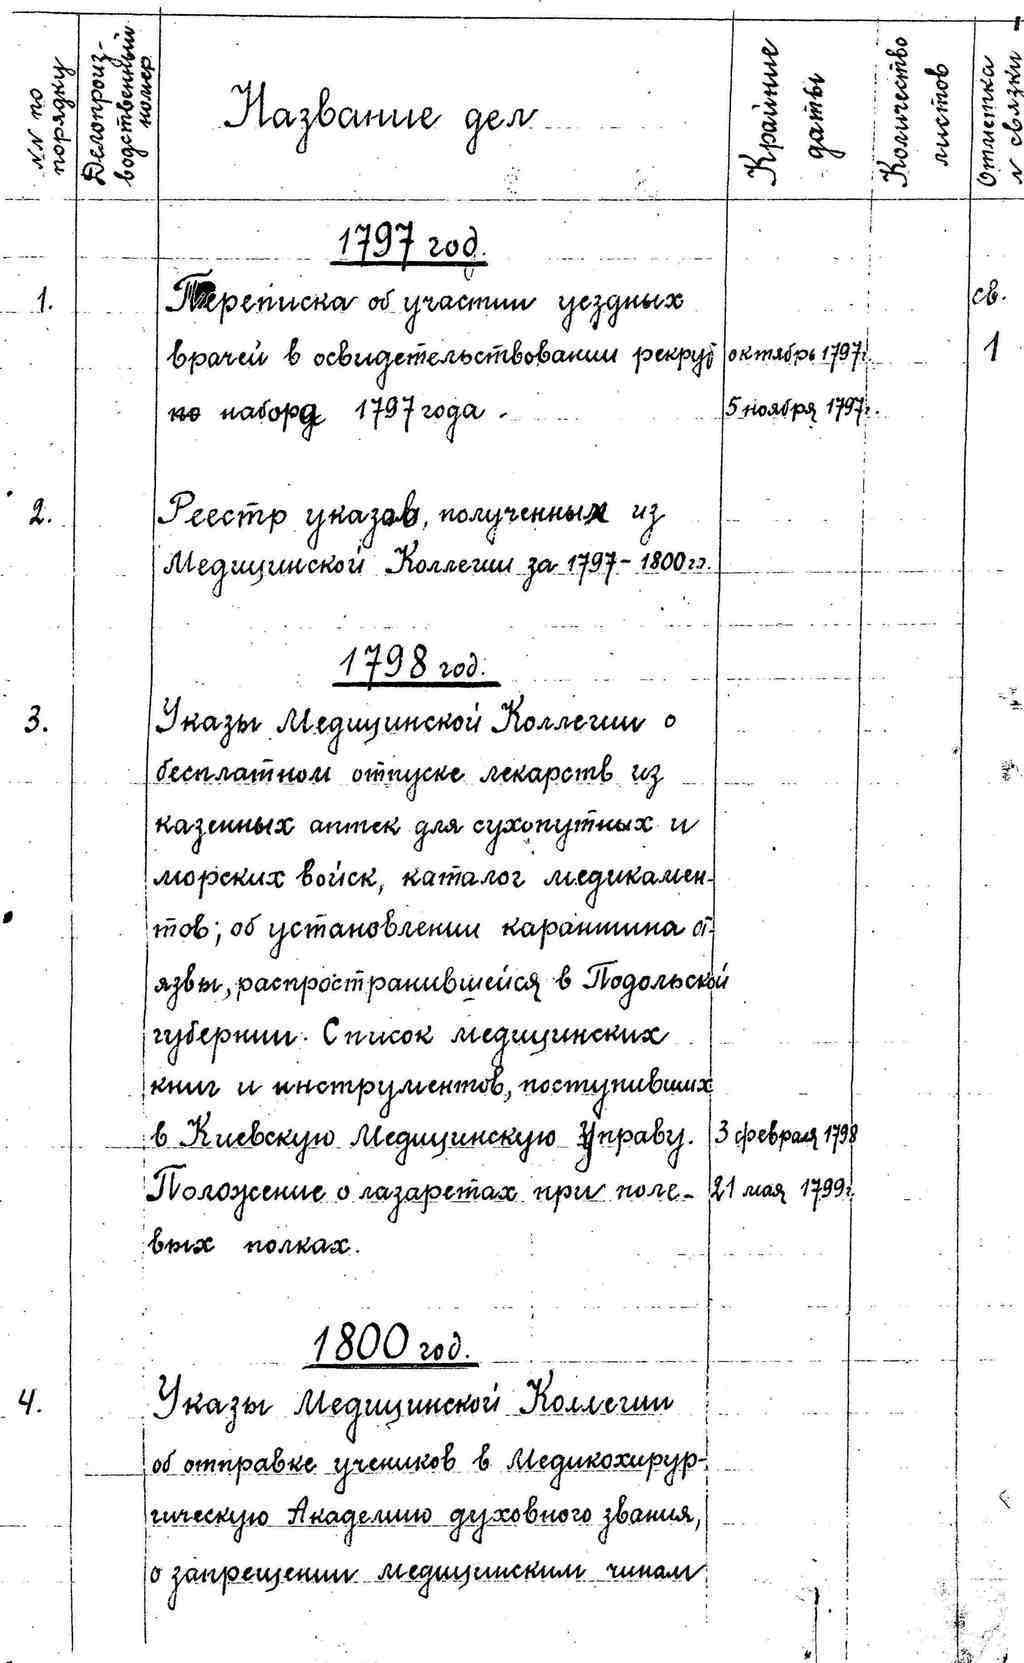 NN по порядку
Делопроиз-
водственный
номер
Название дел
Крайние
даты
Количество
листов
Отметка
N связки
1797 год.
1. Переписка об участии уездных св.
врачей в освидетельствовании рекрут октябрь 1797г. 1
по набору 1797 года. 5 ноября 1797г.
2. Реестр указов, полученных из
Медицинской Коллегии за 1797-1800 гг.
1798 год.
3. Указы Медицинской Коллегии о
бесплатном отпуске лекарств из
казенных аптек для сухопутных и
морских войск, каталог медикамен-
тов; об установлении карантина от
язвы, распространившейся в Подольской
губернии. Список медицинских
книг и инструментов, поступивших
в Киевскую Медицинскую Управу. 3 февраля 1798
Положение о лазаретах при поле- 21 мая 1799г.
вых полках.
1800 год.
4. Указы Медицинской Коллегии
об отправке учеников в Медикохирур-
гическую Академию духовного звания,
о запрещении медицинским чинам